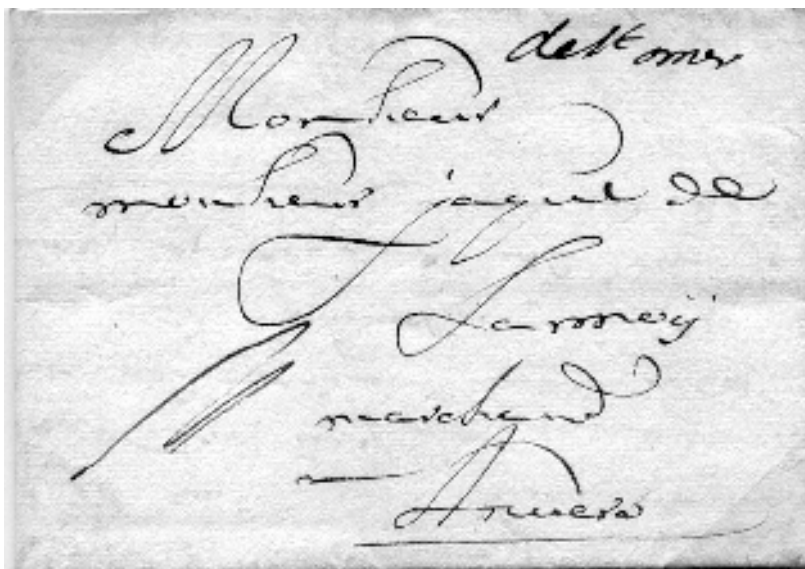 de St omer
Monsieur
monsieur jaque de
Lannoÿ
marchand
Anvers